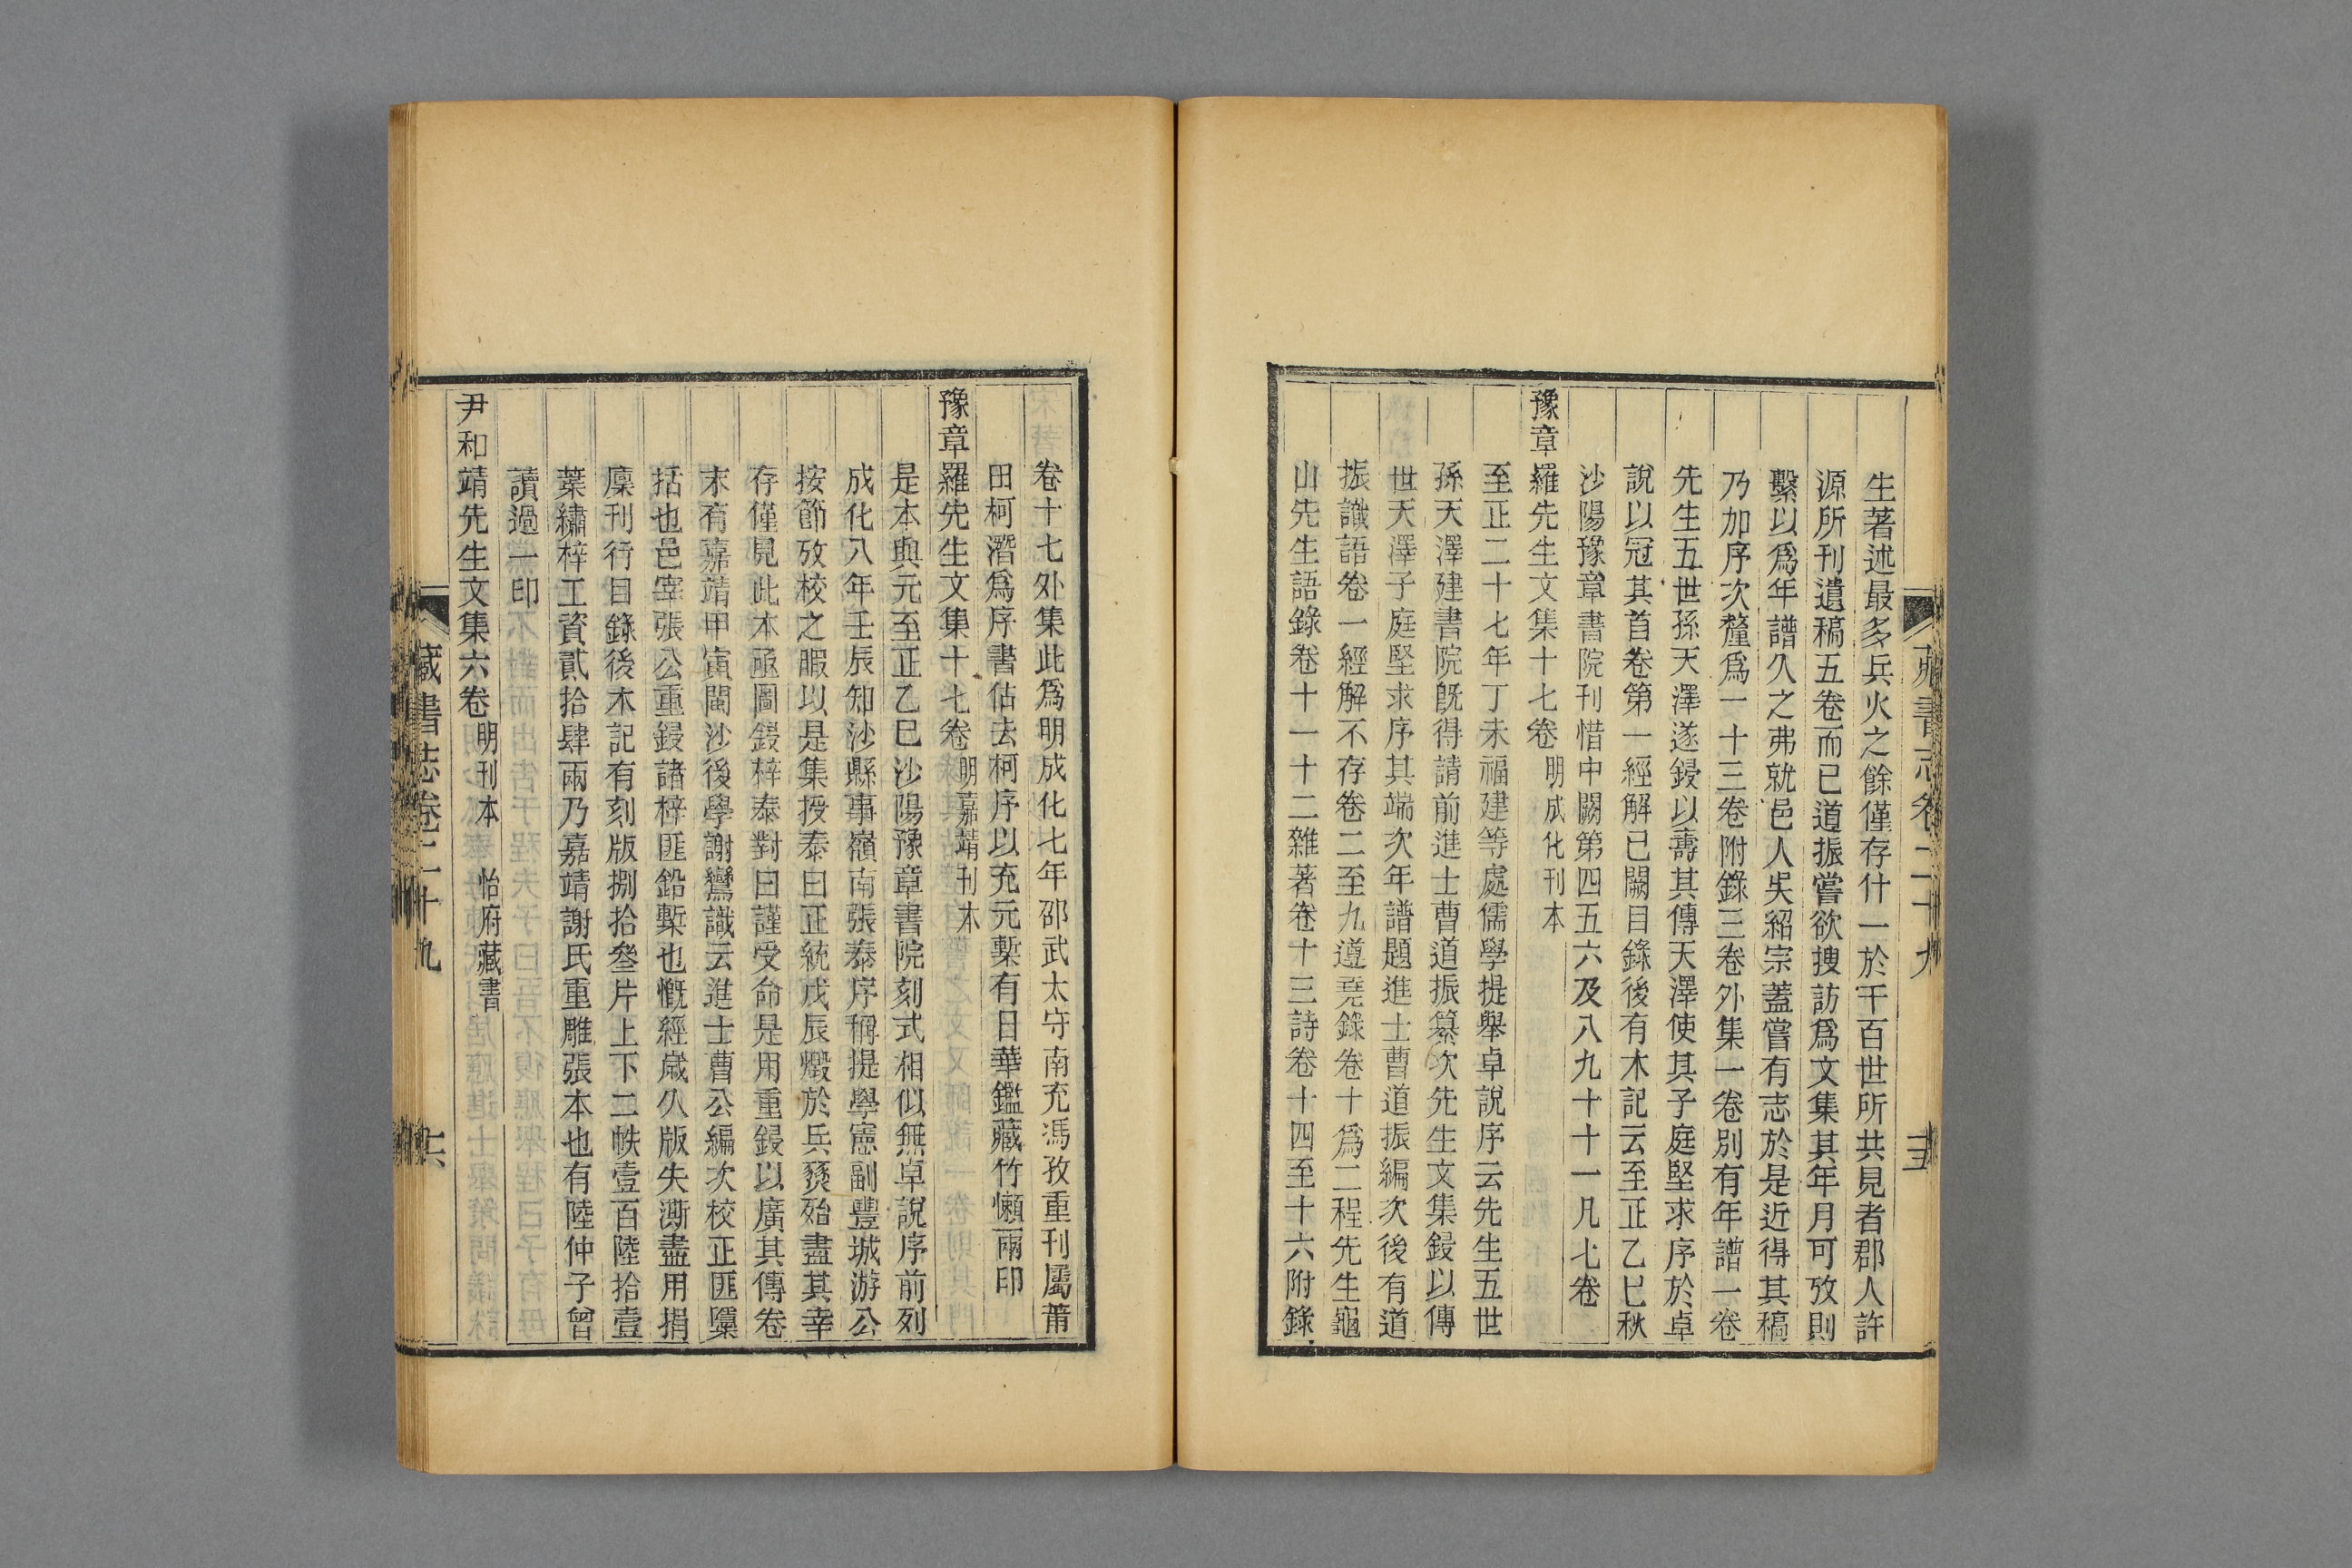 生著述最多兵火之餘僅存什一於千百世所共見者郡人許
源所刊遺稿五卷而已道振嘗欲搜訪爲文集其年月可攷則
繫以爲年譜久之弗就邑人吳紹宗蓋嘗有志於是近得其稿
乃加序次釐爲一十三卷附錄三卷外集一卷別有年譜一卷
先生五世孫天澤遂鋟以壽其傳天澤使其子庭堅求序於卓
說以冠其首卷第一經解已闕目錄後有木記云至正乙巳秋
沙陽豫章書院刊惜中闕第四五六及八九十十一凡七卷
豫章羅先生文集十七卷 明成化刊本
至正二十七年丁未福建等處儒學提舉卓說序云先生五世
孫天澤建書院旣得請前進士曹道振纂次先生文集鋟以傳
世天澤子庭堅求序其端次年譜題進士曹道振編次後有道
振識語卷一經解不存卷二至九遵堯錄卷十爲二程先生龜
山先生語錄卷十一十二雜著卷十三詩卷十四至十六附錄
卷十七外集此爲明成化七年邵武太守南充馮孜重刊屬莆
田柯潛爲序書估去柯序以充元槧有日華鑑藏竹懶兩印
豫章羅先生文集十七卷 明嘉靖刊本
是本與元至正乙巳沙陽豫章書院刻式相似無卓說序前列
成化八年壬辰知沙縣事嶺南張泰序稱提學憲副豐城游公
按節攷校之暇以是集授泰曰正統戊辰燬於兵燹殆盡其幸
存僅見此本亟圖鋟梓泰對曰謹受命是用重鋟以廣其傳卷
末有嘉靖甲寅閩沙後學謝鸞識云進士曹公編次校正匪檃
括也邑宰張公重鋟諸梓匪鉛槧也慨經歲久版失澌盡用捐
廩刊行目錄後木記有刻版捌拾叄片上下二帙壹百陸拾壹
葉繡梓工資貳拾肆兩乃嘉靖謝氏重雕張本也有陸仲子曾
讀過一印
尹和靖先生文集六卷 明刊本 怡府藏書
藏書志卷二十九 六